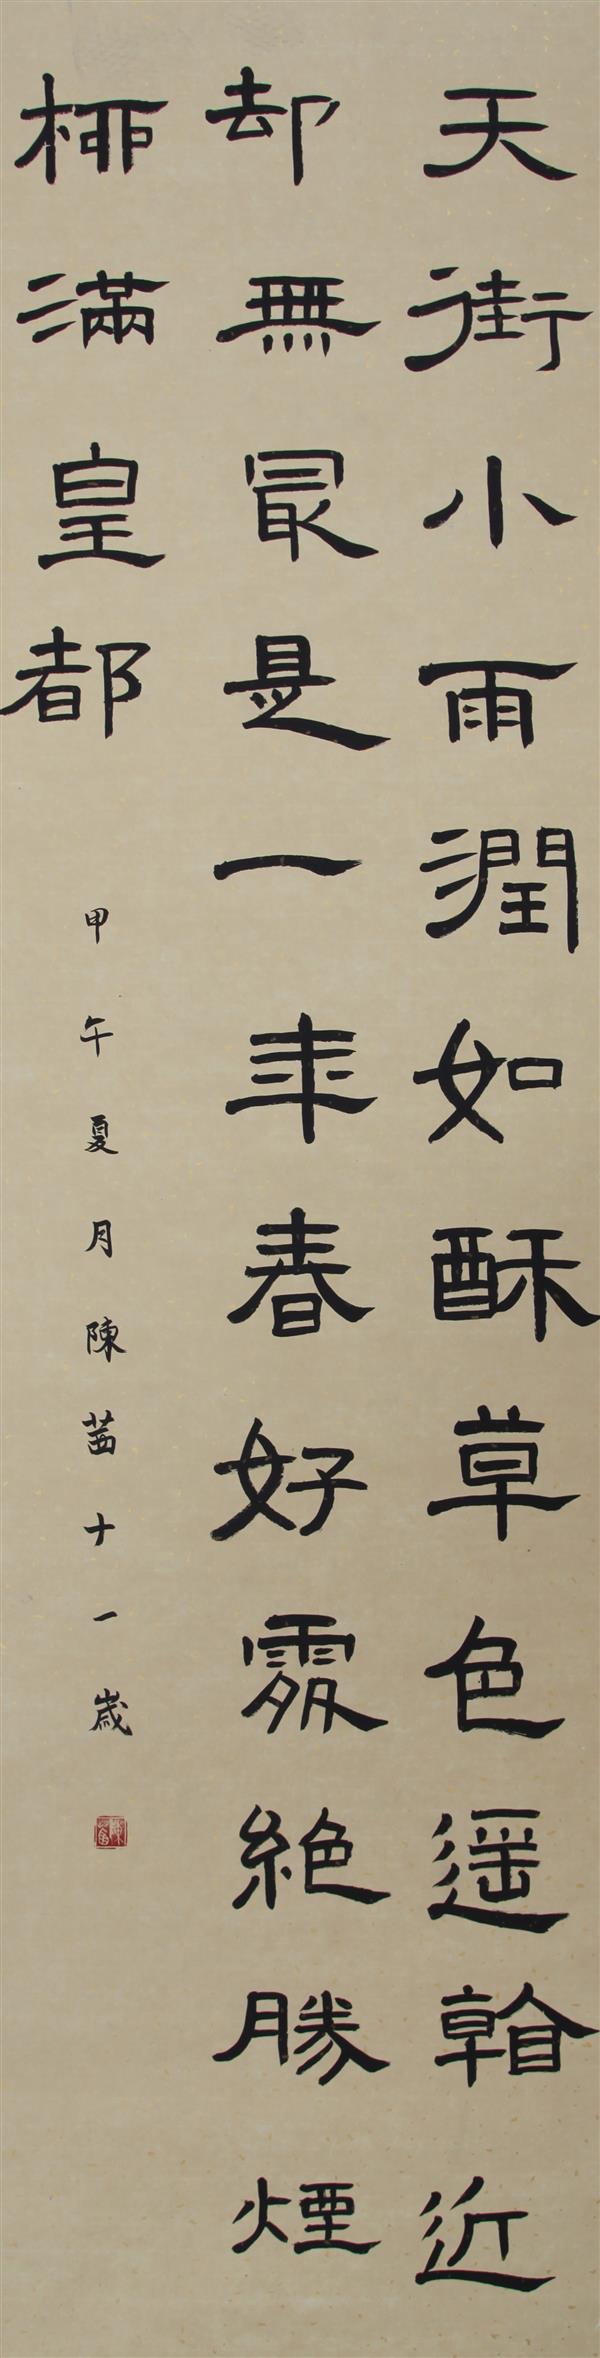 天街小雨潤如酥草色遥看近
却無最是一年春好處絕勝煙
桺滿皇都
甲午夏月陳茜十一歲